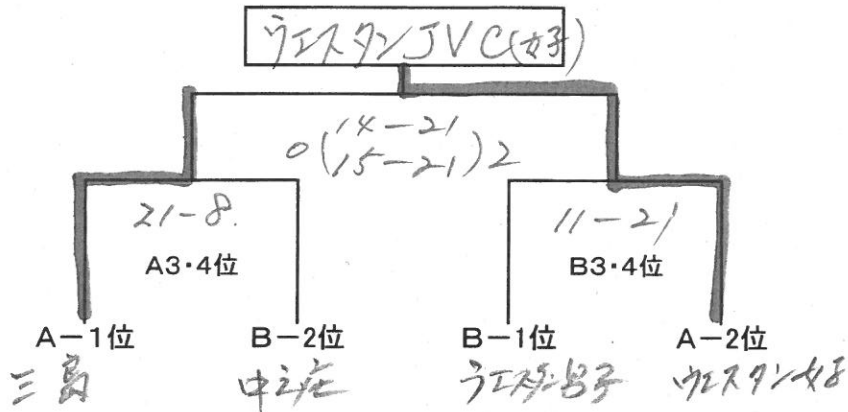 ウエスタンJVC(女子)
0(14-21
15-21)2
21-8.
11-21
A3・4位
B3・4位
A-1位
B-2位
B-1位
A-2位
三島
中之庄
ウエスタン男子
ウエスタン女子